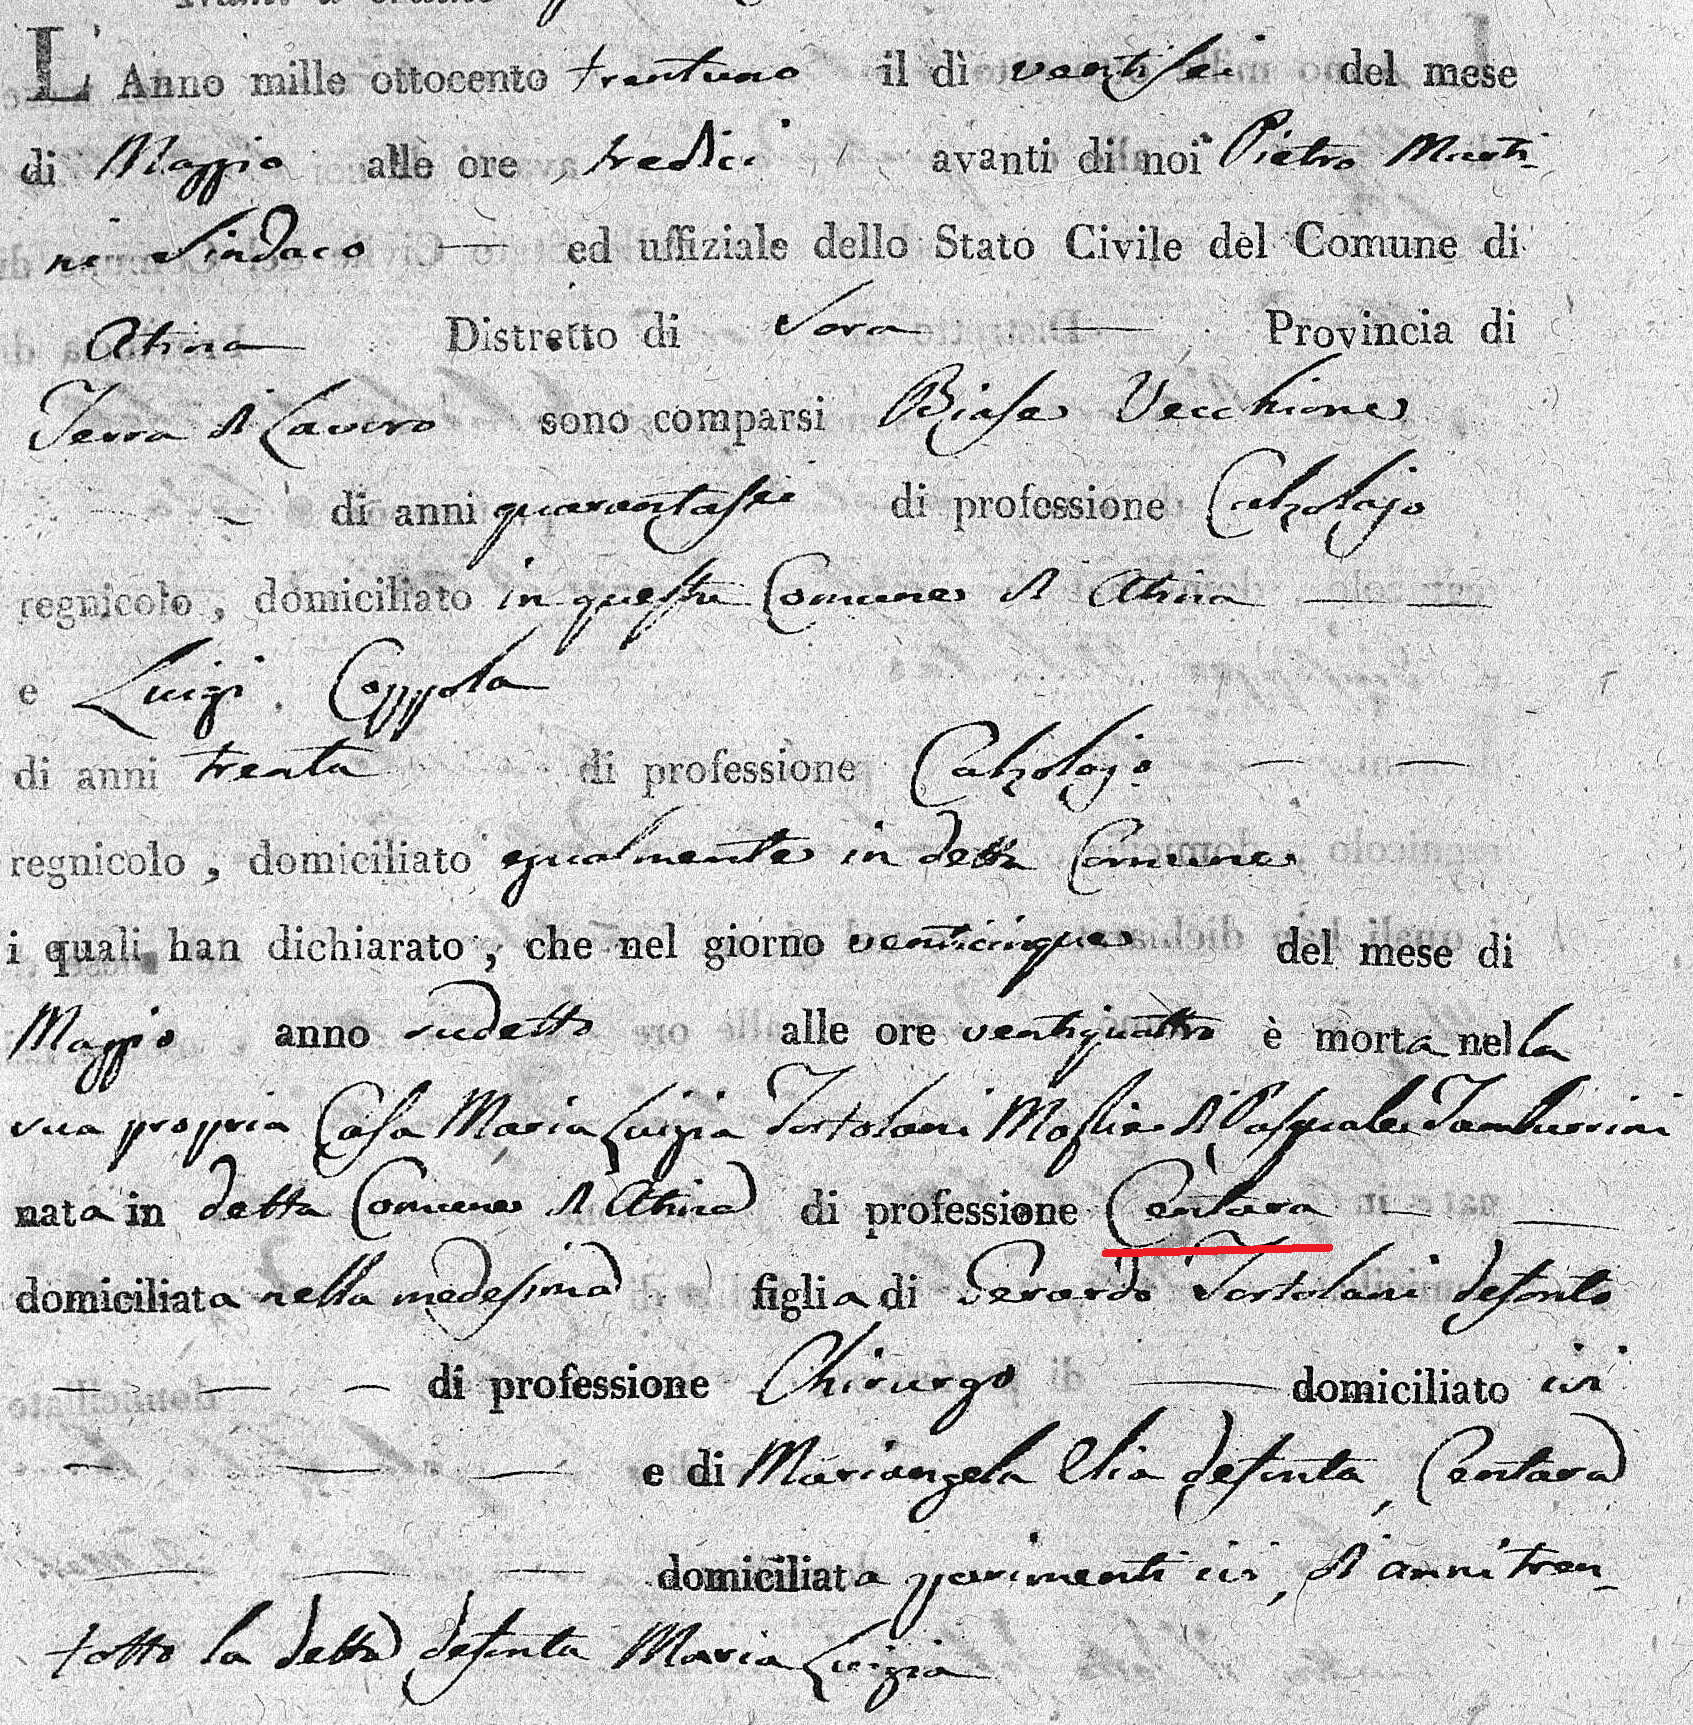 L' Anno mille ottocento trentuno il dì ventisei del mese
di Maggio alle ore tredici avanti di noi Pietro Manti-
ni Sindaco — ed uffiziale dello Stato Civile del Comune di
Atina Distretto di Sora — Provincia di
Terra di Lavoro sono comparsi Biase Vecchione
di anni quarantasei di professione Calzolajo
regnicolo, domiciliato in questo Comune di Atina — —
e Luigi Coppola
di anni trenta di professione Calzolajo — —
regnicolo, domiciliato egualmente in detto Comune
i quali han dichiarato, che nel giorno venticinque del mese di
Maggio anno sudetto alle ore ventiquattro è morta nella
sua propria Casa Maria Luigia Tortolani Moglie di Pasquale Tamburrini
nata in detto Comune di Atina di professione Centara — —
domiciliata nella medesima figlia di Gerardo Tortolani defonto
— — — di professione Chirurgo — domiciliato ivi
— — — e di Mariangela Elia defonta, Centara
— — — domiciliata parimenti ivi, di anni tren-
totto la detta defonta Maria Luigia